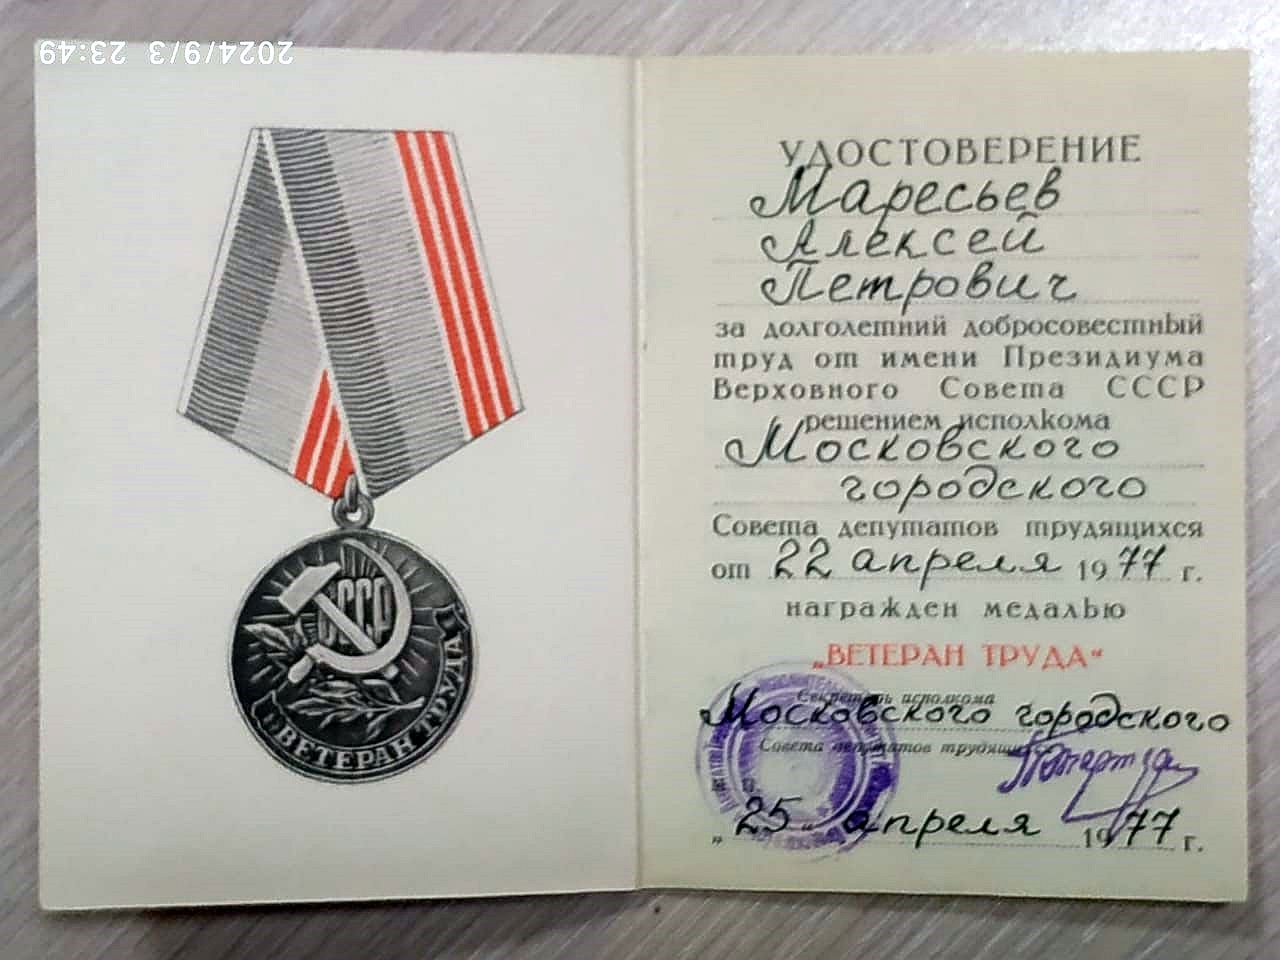 2024/9/3 23:49
СССР
ВЕТЕРАН ТРУДА
УДОСТОВЕРЕНИЕ
Маресьев
Алексей
Петрович
за долголетний добросовестный
труд от имени Президиума
Верховного Совета СССР
решением исполкома
Московского
городского
Совета депутатов трудящихся
от 22 апреля 1977 г.
награжден медалью
„ВЕТЕРАН ТРУДА“
Секретарь исполкома
Московского городского
Совета депутатов трудящихся
„25“ апреля 1977 г.